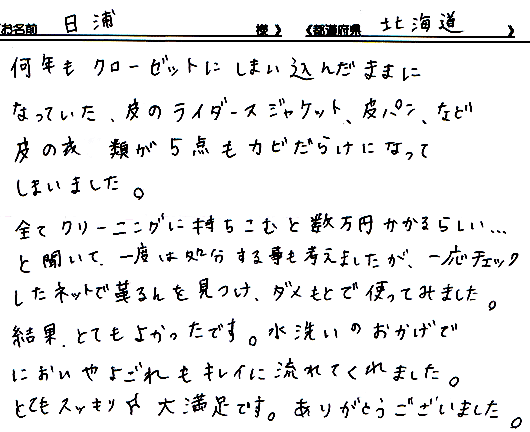 お名前 日浦 様 》 《都道府県 北海道 》
何年も クローゼットに しまい込んだままに
なっていた、皮のライダースジャケット、皮パン、など
皮の衣 類が 5点も カビだらけになって
しまいました。
全て クリーニングに 持ちこむと 数万円かかるらしい…
と聞いて、一度は処分する事も考えましたが、一応チェック
したネットで 革るんを見つけ、ダメもとで 使ってみました。
結果、とてもよかったです。水洗いの おかげで
においやよごれも キレイに 流れてくれました。
とてもスッキリ 大満足です。ありがとうございました。